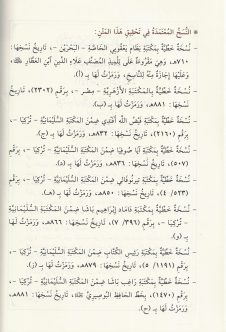 ■ النُّسَخُ المُعْتَمَدَةُ فِي تَحْقِيقِ هَذَا المَتْنِ:
- نُسْخَةٌ خَطِّيَّةٌ بِمَكْتَبَةِ نِظَام يَعْقُوبِي الخَاصَّةِ - البَحْرَيْن -، تَارِيخُ نَسْخِهَا:
٧١٠هـ، وَهِيَ مَقْرُوءَةٌ عَلَى تِلْمِيذِ المُصَنِّفِ عَلَاءِ الدِّينِ ابْنِ العَطَّارِ
وَعَلَيْهَا إِجَازَةٌ مِنْهُ لِلنَّاسِخِ، وَرَمَزْتُ لَهَا بِـ (أ).
- نُسْخَةٌ خَطِّيَّةٌ بِالمَكْتَبَةِ الأَزْهَرِيَّةِ - مِصْر -، بِرَقْمِ (٢٣٠٢)، تَارِيخُ
نَسْخِهَا: ٨٨١هـ، وَرَمَزْتُ لَهَا بِـ (ب).
- نُسْخَةٌ خَطِّيَّةٌ بِمَكْتَبَةِ فَيْضِ اللَّهِ أَفَنْدِي ضِمْنَ المَكْتَبَةِ السُّلَيْمَانِيَّةِ - تُرْكِيَا -،
بِرَقْمِ (٢١٦٠)، تَارِيخُ نَسْخِهَا: ٨٣٢هـ، وَرَمَزْتُ لَهَا بِـ (ج).
- نُسْخَةٌ خَطِّيَّةٌ بِمَكْتَبَةِ آيَا صُوفْيَا ضِمْنَ المَكْتَبَةِ السُّلَيْمَانِيَّةِ - تُرْكِيَا -، بِرَقْمِ
(٥٠٧)، تَارِيخُ نَسْخِهَا: ٨٣٦هـ، وَرَمَزْتُ لَهَا بِـ (د).
- نُسْخَةٌ خَطِّيَّةٌ بِمَكْتَبَةِ تِرْنُوفَالِي ضِمْنَ المَكْتَبَةِ السُّلَيْمَانِيَّةِ - تُرْكِيَا -، بِرَقْمِ
(٥٢٣/ ٤)، تَارِيخُ نَسْخِهَا: ٨٥٠هـ، وَرَمَزْتُ لَهَا بِـ (هـ).
- نُسْخَةٌ خَطِّيَّةٌ بِمَكْتَبَةِ دَامَاد إِبْرَاهِيم بَاشَا ضِمْنَ المَكْتَبَةِ السُّلَيْمَانِيَّةِ
- تُرْكِيَا -، بِرَقْمِ (٣٩٦/ ٧)، تَارِيخُ نَسْخِهَا: ٨٦٦هـ، وَرَمَزْتُ لَهَا
بِـ (و).
- نُسْخَةٌ خَطِّيَّةٌ بِمَكْتَبَةِ رَئِيسِ الكُتَّابِ ضِمْنَ المَكْتَبَةِ السُّلَيْمَانِيَّةِ - تُرْكِيَا -،
بِرَقْمِ (١١٩١/ ٥)، تَارِيخُ نَسْخِهَا: ٨٧٩هـ، وَرَمَزْتُ لَهَا بِـ (ز).
- نُسْخَةٌ خَطِّيَّةٌ بِمَكْتَبَةِ رَاغِب بَاشَا ضِمْنَ المَكْتَبَةِ السُّلَيْمَانِيَّةِ - تُرْكِيَا -، بِرَقْمِ
(١٤٧٠)، بِخَطِّ الحَافِظِ البُوصِيرِيِّ، تَارِيخُ نَسْخِهَا: ٨٨١هـ،
وَرَمَزْتُ لَهَا بِـ (ح).